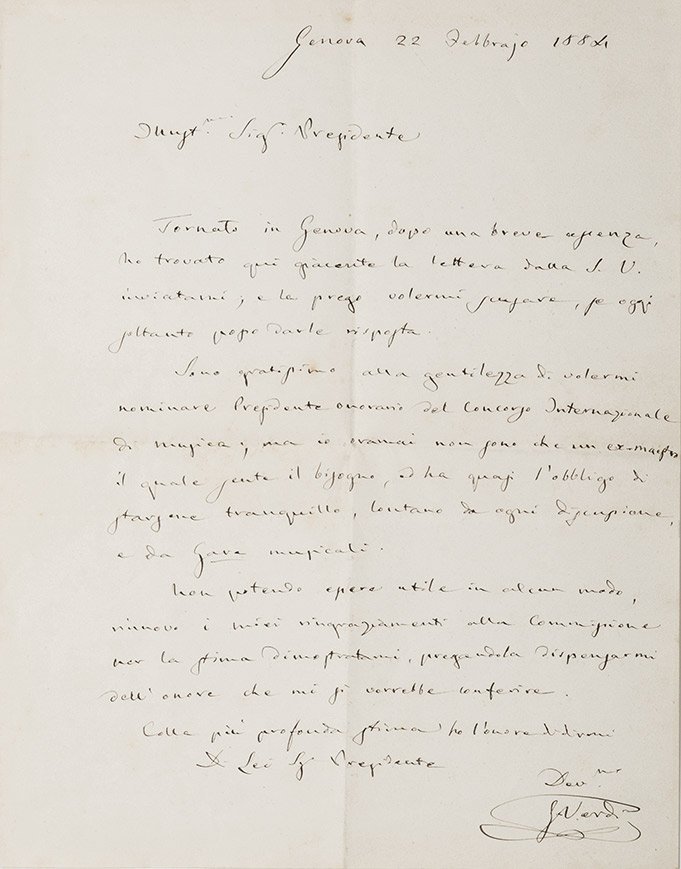 Genova 22 Febbrajo 1884
Illust.mo Sig.r Presidente
Tornato in Genova, dopo una breve assenza,
ho trovato qui giacente la lettera dalla S. V.
inviatami; e la prego volermi scusare, se oggi
soltanto posso darle risposta.
Sono gratissimo alla gentilezza di volermi
nominare Presidente onorario del Concorso Internazionale
di musica; ma io oramai non sono che un ex-maestro
il quale sente il bisogno, ed ha quasi l'obbligo di
starsene tranquillo, lontano da ogni discussione,
e da Gare musicali.
Non potendo essere utile in alcun modo,
rinnovo i miei ringraziamenti alla Commissione
per la stima dimostratami, pregandola dispensarmi
dell'onore che mi si vorrebbe conferire.
Colla più profonda stima ho l'onore di dirmi
Di Lei Sg Presidente
Dev.mo
G. Verdi